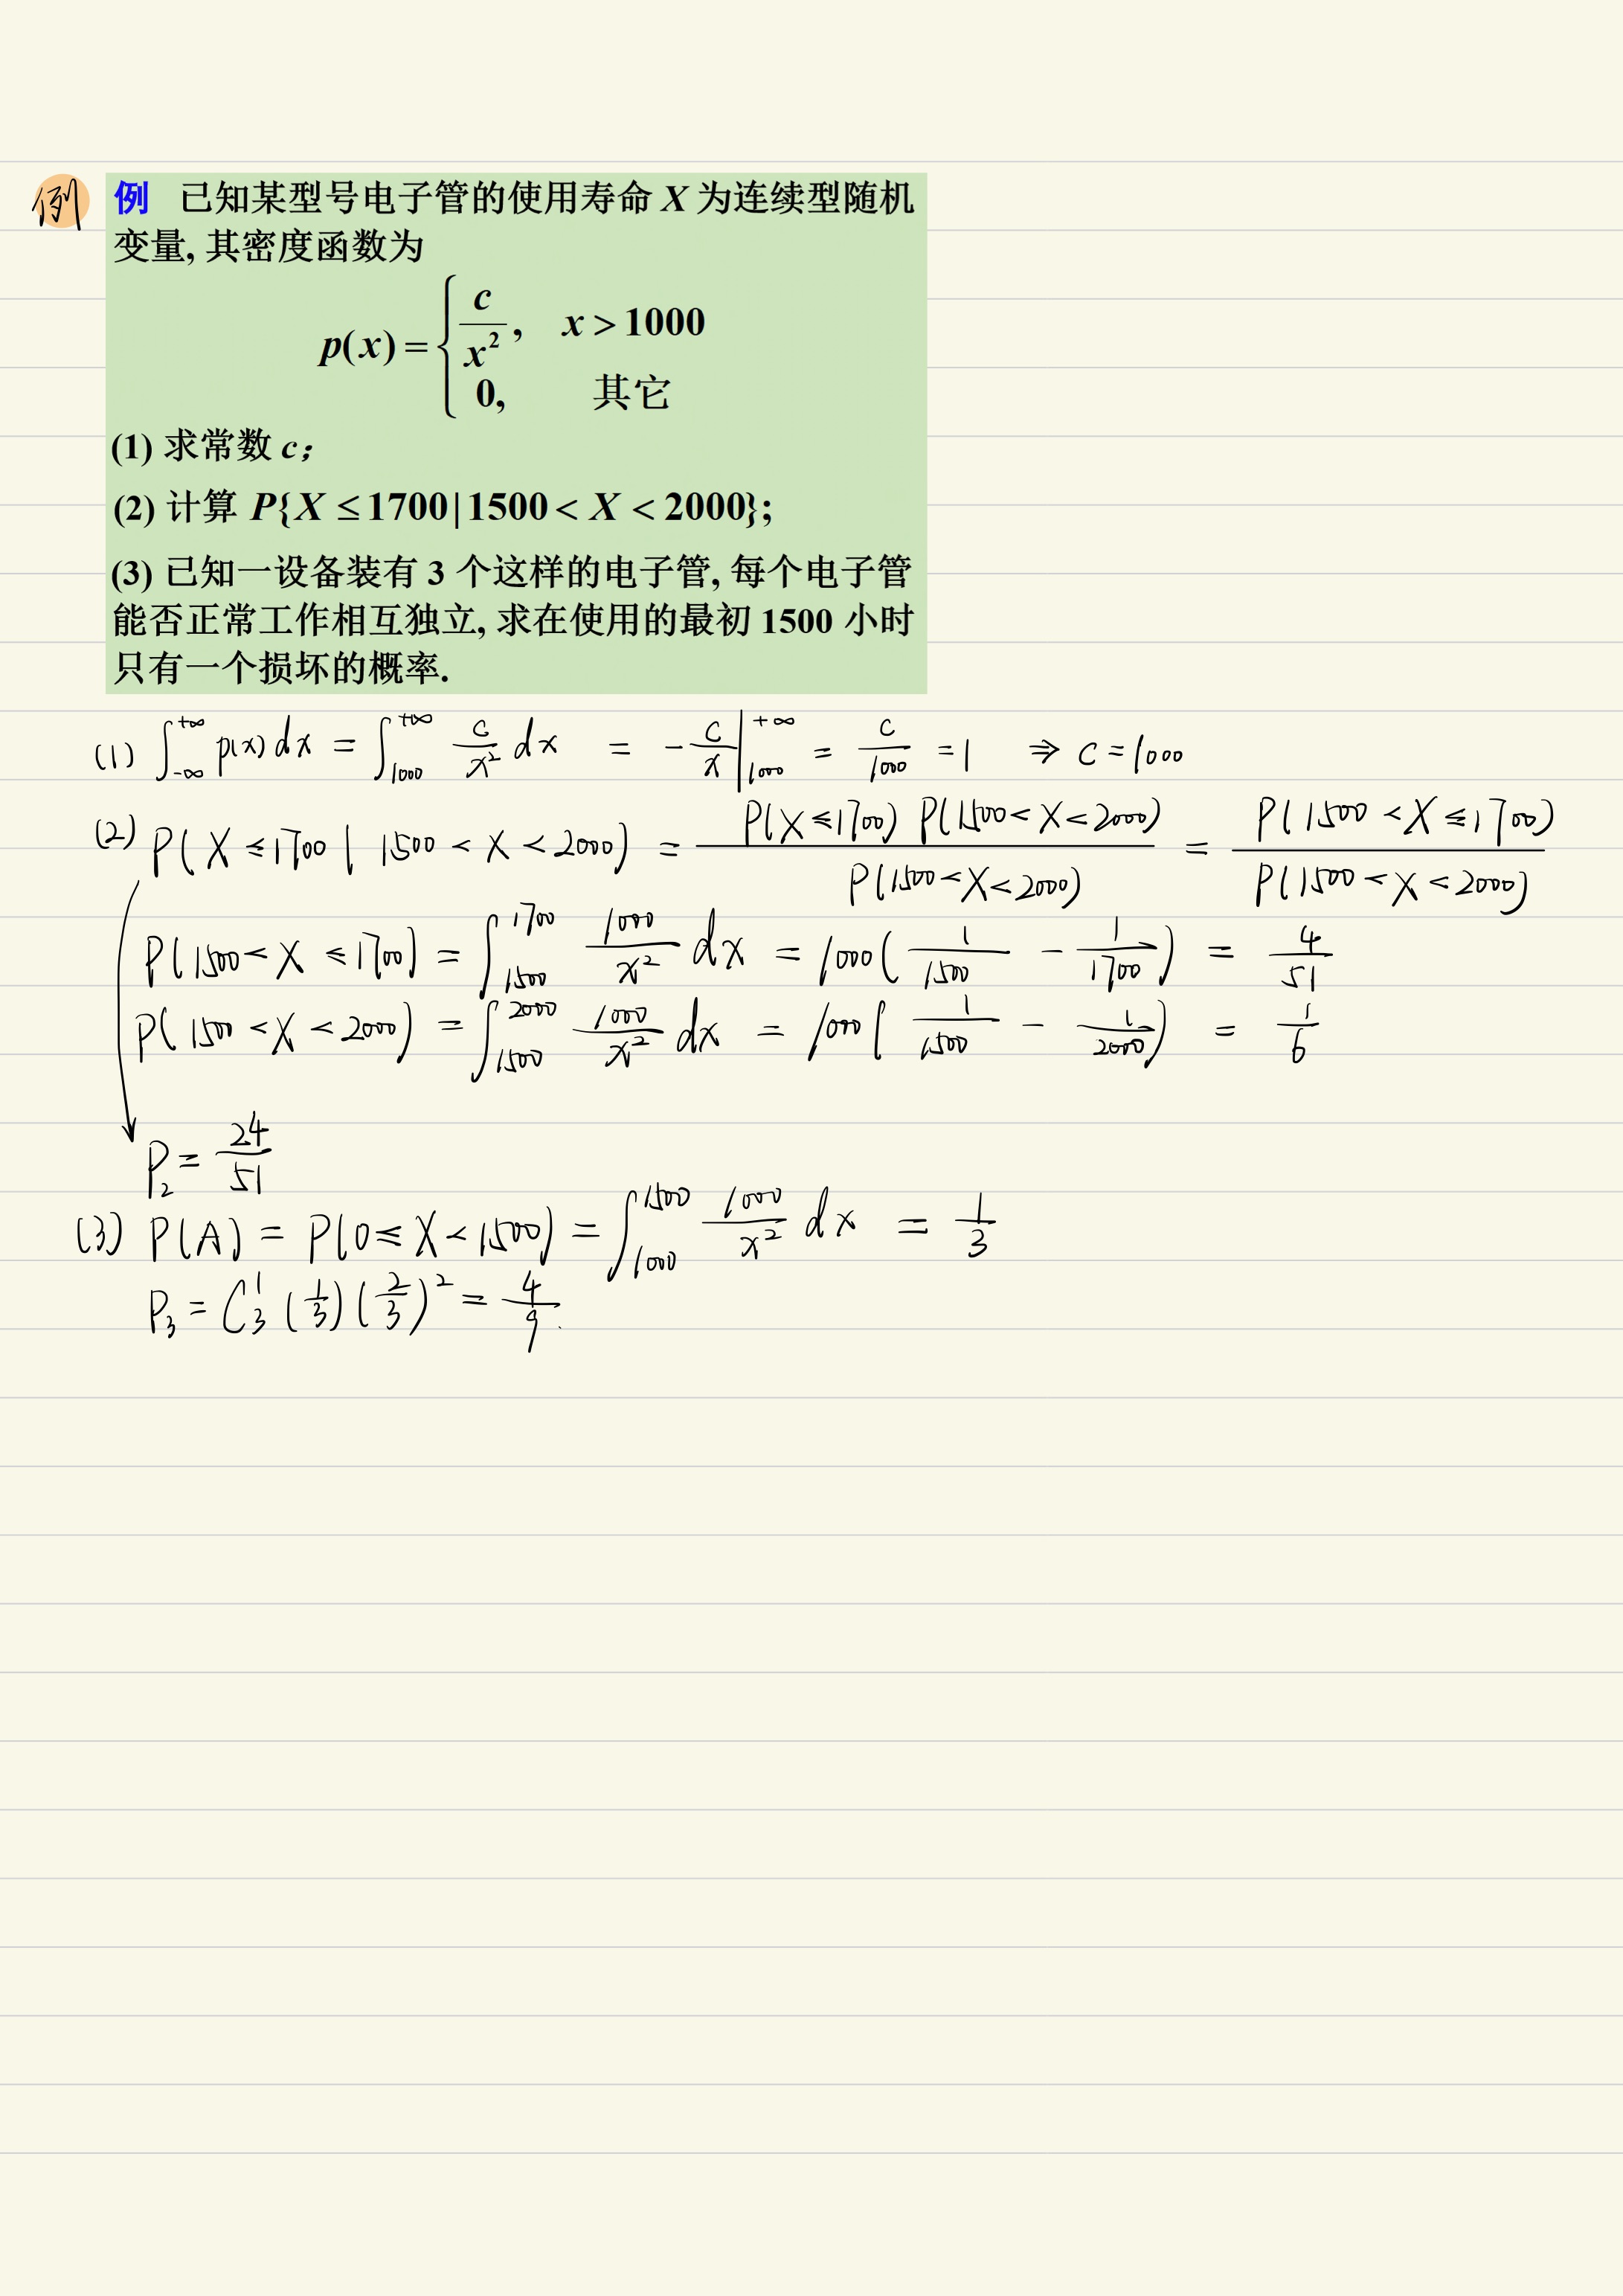 例
例 已知某型号电子管的使用寿命 X 为连续型随机
变量, 其密度函数为
p(x) = { c/x², x > 1000
0, 其它
(1) 求常数 c；
(2) 计算 P{X ≤ 1700 | 1500 < X < 2000};
(3) 已知一设备装有 3 个这样的电子管, 每个电子管
能否正常工作相互独立, 求在使用的最初 1500 小时
只有一个损坏的概率.
(1) ∫_{-∞}^{+∞} p(x) dx = ∫_{1000}^{+∞} c/x² dx = -c/x |_{1000}^{+∞} = c/1000 = 1 ⇒ c = 1000
(2) P(X ≤ 1700 | 1500 < X < 2000) = P(X ≤ 1700) P(1500 < X < 2000) / P(1500 < X < 2000) = P(1500 < X ≤ 1700) / P(1500 < X < 2000)
P(1500 < X ≤ 1700) = ∫_{1500}^{1700} 1000/x² dx = 1000(1/1500 - 1/1700) = 4/51
P(1500 < X < 2000) = ∫_{1500}^{2000} 1000/x² dx = 1000(1/1500 - 1/2000) = 1/6
P₂ = 24/51
(3) P(A) = P(0 ≤ X < 1500) = ∫_{1000}^{1500} 1000/x² dx = 1/3
P₃ = C₃¹ (1/3)(2/3)² = 4/9.